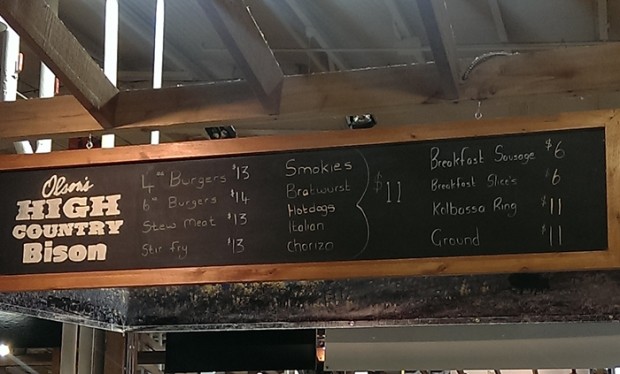 Olson's
HIGH
COUNTRY
Bison
4" Burgers $13
6" Burgers $14
Stew meat $13
Stir fry $13
Smokies
Bratwurst
Hotdogs
Italian
Chorizo
$11
Breakfast Sausage $6
Breakfast Slice's $6
Kolbassa Ring $11
Ground $11